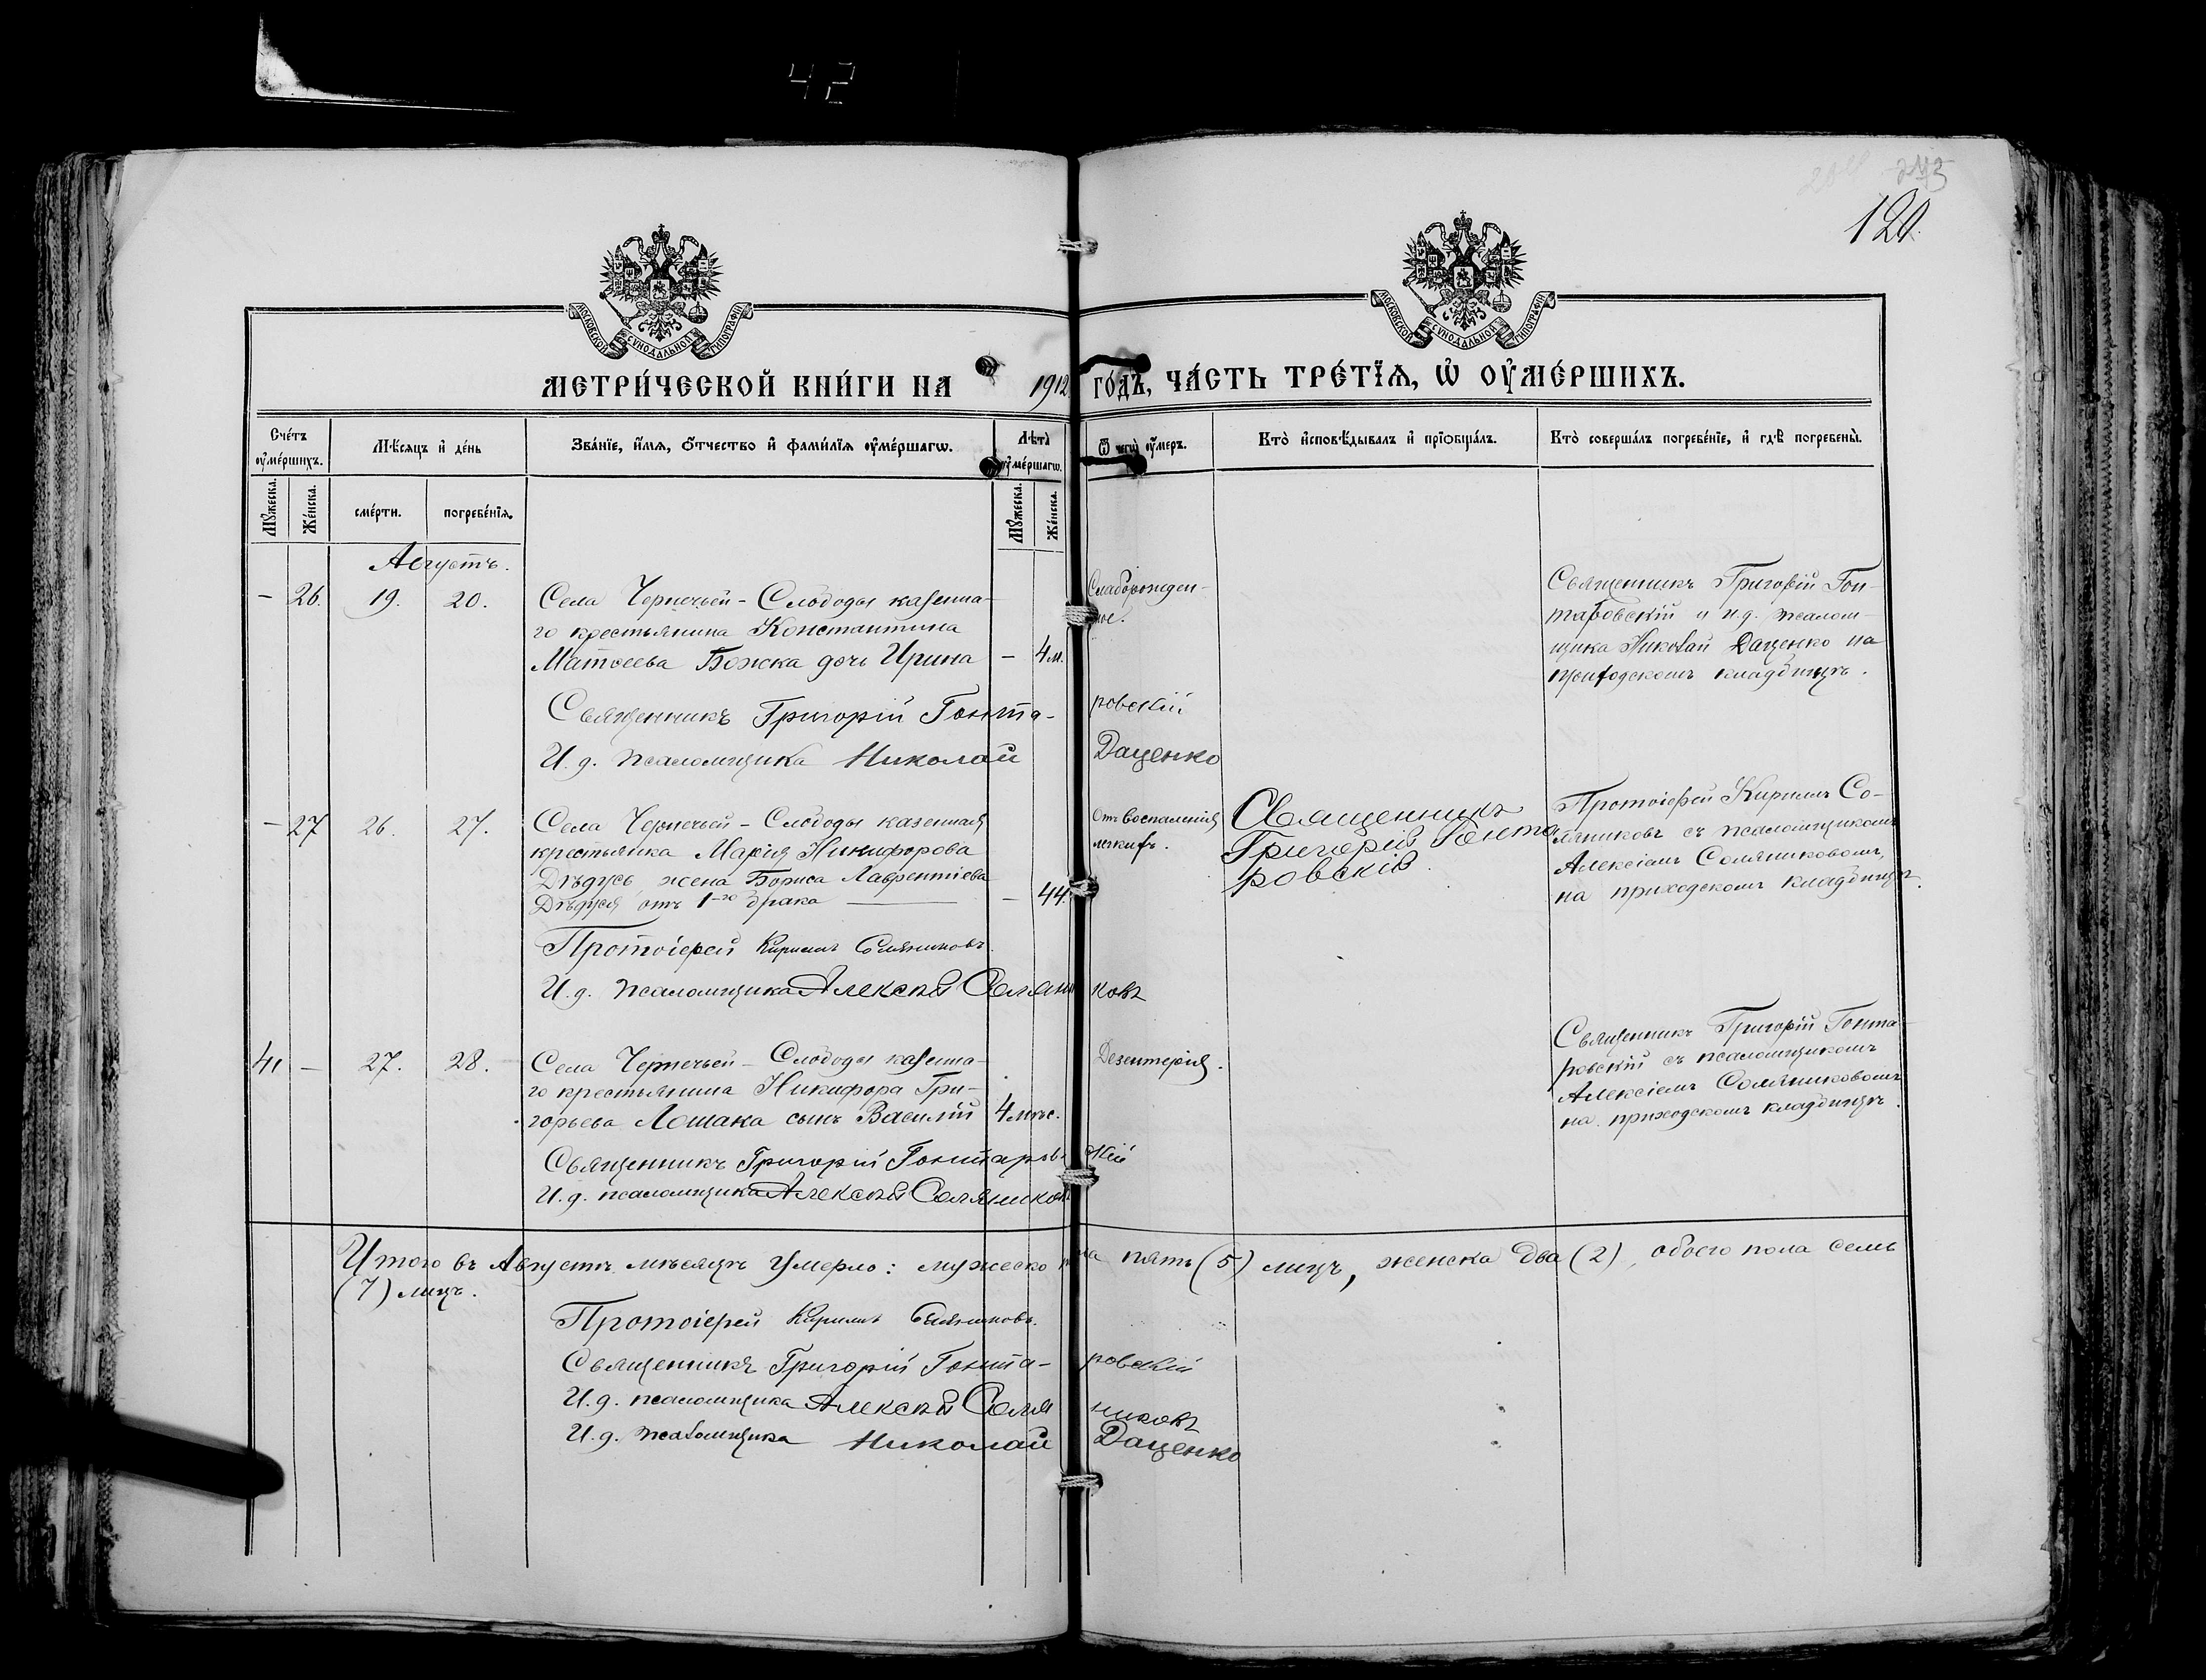 42
243
120.
МОСКОВСКОЙ СѴНОДАЛЬНОЙ ТИПОГРАФІИ
МОСКОВСКОЙ СѴНОДАЛЬНОЙ ТИПОГРАФІИ
МЕТРИ́ЧЕСКОЙ КНИ́ГИ НА 1912 ГО́ДЪ, ЧА́СТЬ ТРЕ́ТЇѦ, Ѡ҆ ОУ҆МЕ́РШИХЪ.
Сче́тъ оу҆ме́ршихъ.
Мѣ́сяцъ и҆ де́нь
Зва́нїе, и҆́мя, ѻ҆́тчество и҆ фами́лїя оу҆ме́ршагѡ.
Лѣ́та оу҆ме́ршагѡ.
Ѿ чегѡ̀ оу҆́меръ.
Кто̀ и҆сповѣ́дывалъ и҆ прїѡбща́лъ.
Кто̀ соверша́лъ погребе́нїе, и҆ гдѣ̀ погребены̀.
Мꙋ́жеска.
Же́нска.
сме́рти.
погребе́нїѧ.
Мꙋ́жеска.
Же́нска.
Августъ.
– 26. 19. 20.
Села Чернечьей-Слободы казенна-
го крестьянина Константина
Матѳеева Божка дочь Ирина – 4 м.
Слаборожден-
ное.
Священникъ Григорій Гон-
таровскій и и.д. псалом-
щика Николай Даценко на
приходскомъ кладбищѣ.
Священникъ Григорій Гонта-ровскій
И.д. псаломщика Николай Даценко
– 27 26. 27.
Села Чернечьей-Слободы казенная
крестьянка Марія Никифорова
Дѣдусь, жена Бориса Лаврентіева
Дѣдуся отъ 1-го брака – 44.
Отъ воспаленія
легкихъ.
Священникъ
Григорій Гонта
ровскій.
Протоіерей Кириллъ Со-
ляниковъ съ псаломщикомъ
Алексіемъ Соляниковомъ,
на приходскомъ кладбищѣ.
Протоіерей Кириллъ Соляниковъ.
И.д. псаломщика Алексѣй Соляниковъ
41 – 27. 28.
Села Чернечьей-Слободы казенна-
го крестьянина Никифора Гри-
горьева Лошака сынъ Василій 4 мѣс.
Дезентерія.
Священникъ Григорій Гонта-
ровскій съ псаломщикомъ
Алексіемъ Соляниковомъ
на приходскомъ кладбищѣ.
Священникъ Григорій Гонтаровскій
И.д. псаломщика Алексѣй Соляниковъ
Итого въ Августѣ мѣсяцѣ умерло: мужеска пола пять (5) лицъ, женска два (2), обоего пола семь
(7) лицъ.
Протоіерей Кириллъ Соляниковъ.
Священникъ Григорій Гонта-ровскій
И.д. псаломщика Алексѣй Соляниковъ
И.д. псаломщика Николай Даценко